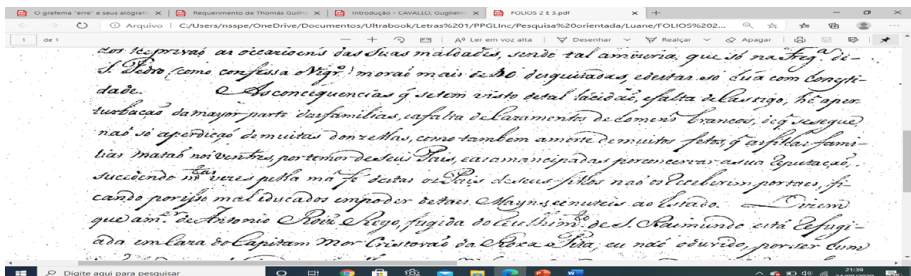 O grafema "erre" e seus alógraf
Requerimento de Thomás Guilh
Introdução - CAVALLO, Guglielm
FOLIOS 2 E 3.pdf
Arquivo | C:/Users/nsspe/OneDrive/Documentos/Ultrabook/Letras%201/PPGLinc/Pesquisa%20orientada/Luane/FOLIOS%202...
1 de 1 Ler em voz alta Desenhar Realçar Apagar
as occazioens das suas maldades, sendo tal a que só na Freg.ª de
S. Pedro (como confessa o Vigr.º) moraó mais de e destas só
dade. As conseqüencias q̃ se tem visto de tal e falta de castigo, he a per
turbaçaó da mayor parte das familias, e a falta de Cazamentos de homens brancos, de q̃ se segue,
naó só a perdiçaó de muitas donzellas, como tambem a morte de muitos fetos, q̃ as filhas fami
lias mataó nos ventres, por temor de seus Pais, e as por conservar a sua reputaçaó,
succedendo m.tas vezes pella má fé destas os Pais de seus filhos naó os receberem por taes, fi
cando por isso mal educados em poder de taes Mayns, e inuteis ao Estado. Dizem
que a m.er de Antonio Roiz Rego, fugida do de S. Raimundo está refugi
ada em Caza do Capitam Mor Cristovaó da Rocha Pita, eu naó o duvido, por ser hum
Digite aqui para pesquisar
21:39